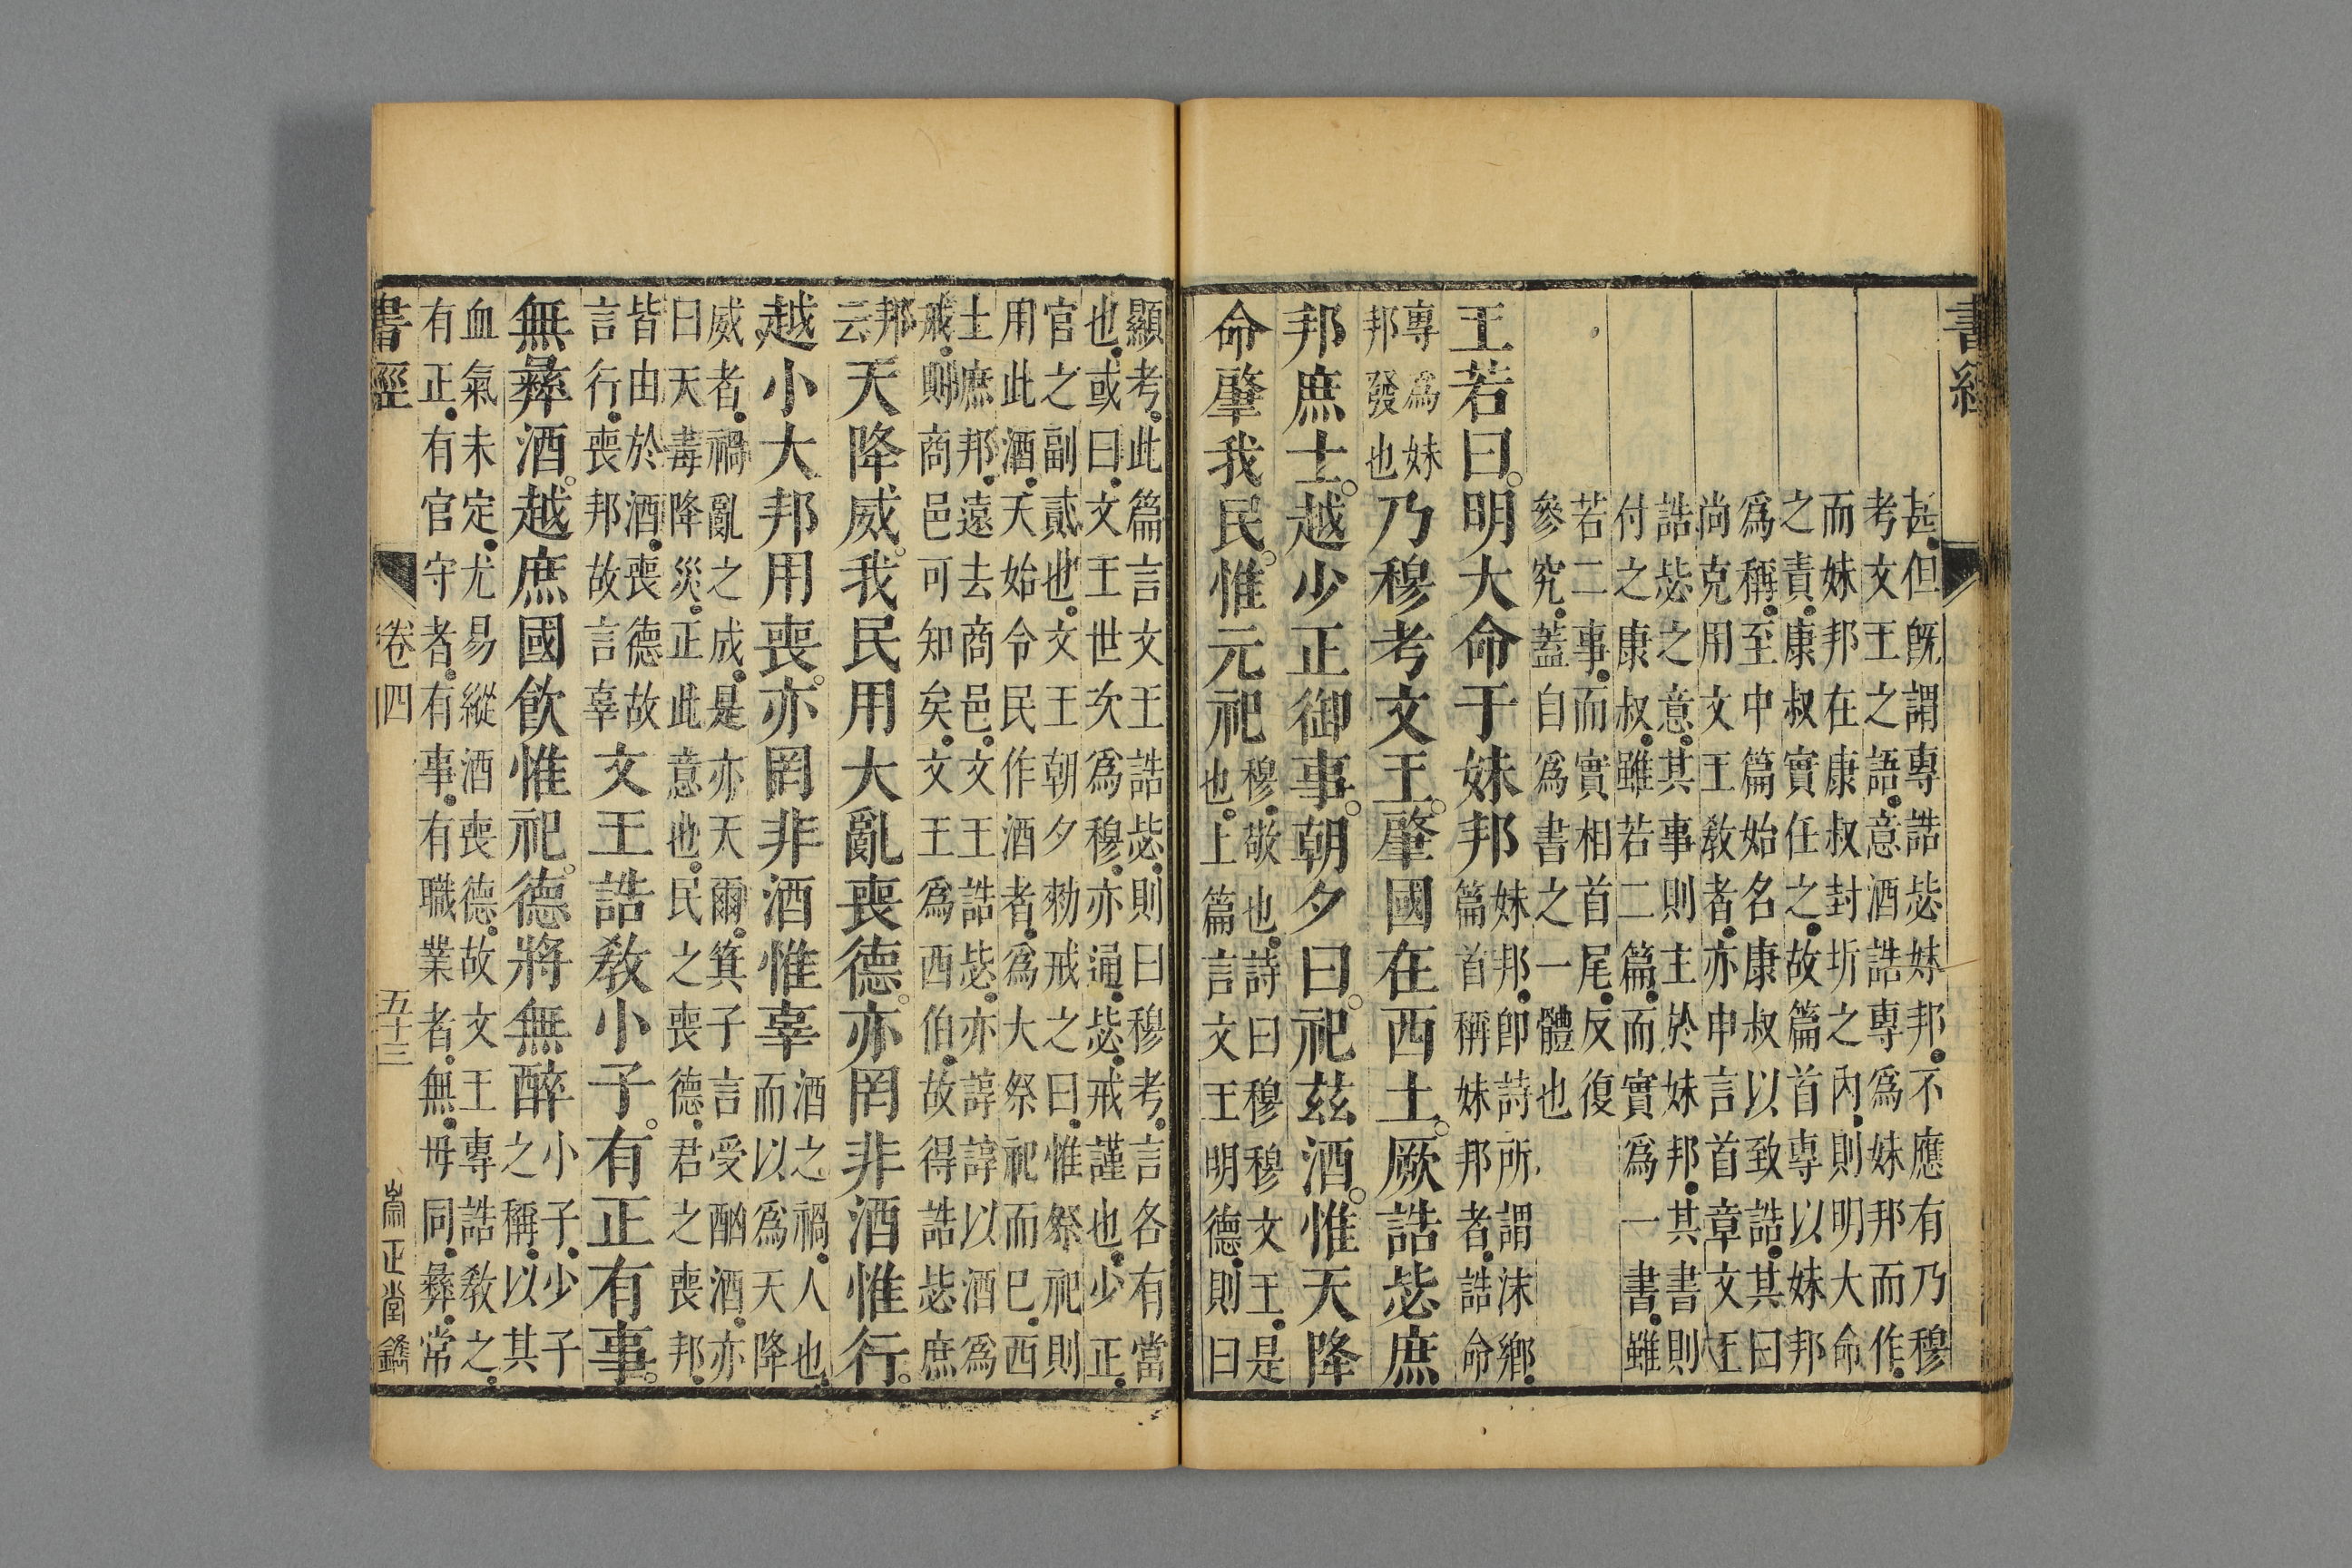 書經
甚。但旣謂專誥毖妹邦。不應有乃穆
考文王之語。意酒誥專爲妹邦而作。
而妹邦在康叔封圻之內。則明大命
之責。康叔實任之。故篇首專以妹邦
爲稱。至中篇始名康叔以致誥。其曰
尚克用文王敎者。亦申言首章文王
誥毖之意。其事則主於妹邦。其書則
付之康叔。雖若二篇。而實爲一書。雖
若二事。而實相首尾。反復
參究。蓋自爲書之一體也
王若曰。明大命于妹邦
妹邦。卽詩所謂沬鄉。
篇首稱妹邦者。誥命
專爲妹
邦發也
乃穆考文王。肇國在西土。厥誥毖庶
邦庶士。越少正御事。朝夕曰。祀茲酒。惟天降
命肇我民。惟元祀
穆。敬也。詩曰穆穆文王。是
也。上篇言文王明德。則曰
顯考。此篇言文王誥毖。則曰穆考。言各有當
也。或曰。文王世次爲穆。亦通。毖。戒謹也。少正。
官之副貳也。文王朝夕勑戒之曰。惟祭祀則
用此酒。天始令民作酒者。爲大祭祀而已。西
土庶邦。遠去商邑。文王誥毖。亦諄諄以酒爲
戒。則商邑可知矣。文王爲西伯。故得誥毖庶
邦
云
天降威。我民用大亂喪德。亦罔非酒惟行。
越小大邦用喪。亦罔非酒惟辜
酒之禍。人也。
而以爲天降
威者。禍亂之成。是亦天爾。箕子言受酗酒。亦
曰天毒降災。正此意也。民之喪德。君之喪邦。
皆由於酒。喪德故
言行。喪邦故言辜
文王誥敎小子。有正有事。
無彝酒。越庶國飮惟祀。德將無醉
小子。少子
之稱。以其
血氣未定。尤易縱酒喪德。故文王專誥敎之。
有正。有官守者。有事。有職業者。無。毋同。彝。常
書經 卷四 五十三 崇正堂鐫